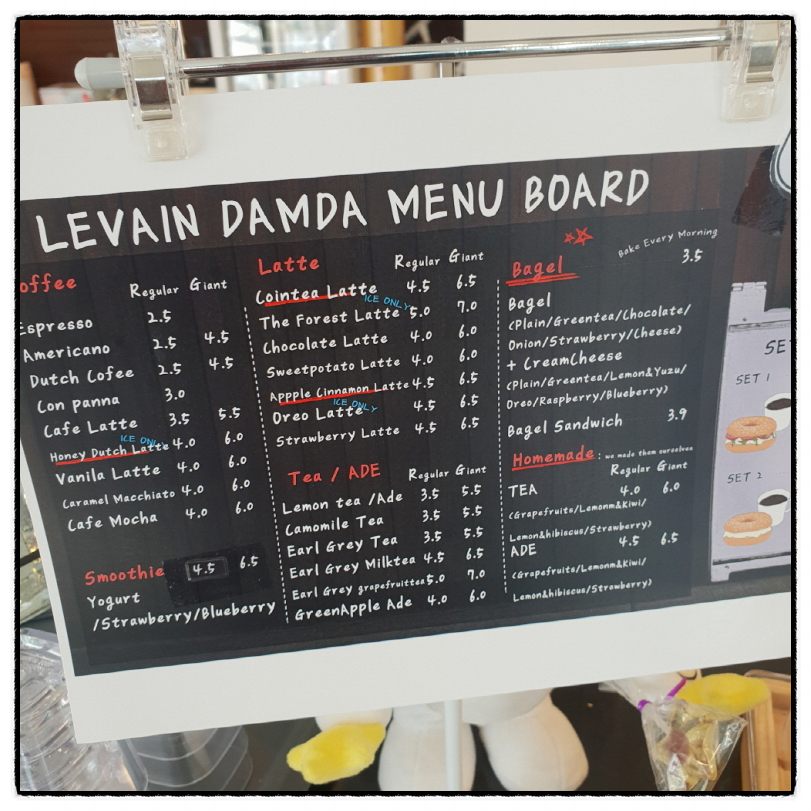 LEVAIN DAMDA MENU BOARD
offee Regular Giant
Espresso 2.5
Americano 2.5 4.5
Dutch Cofee 2.5 4.5
Con panna 3.0
Cafe Latte 3.5 5.5
ICE ONLY
Honey Dutch Latte 4.0 6.0
Vanila Latte 4.0 6.0
Caramel Macchiato 4.0 6.0
Cafe Mocha 4.0 6.0
Smoothie 4.5 6.5
Yogurt
/Strawberry/Blueberry
Latte Regular Giant
Cointea Latte 4.5 6.5
ICE ONLY
The Forest Latte 5.0 7.0
Chocolate Latte 4.0 6.0
Sweetpotato Latte 4.0 6.0
Appple Cinnamon Latte 4.5 6.5
ICE ONLY
Oreo Latte 4.5 6.5
Strawberry Latte 4.5 6.5
Tea / ADE Regular Giant
Lemon tea /Ade 3.5 5.5
Camomile Tea 3.5 5.5
Earl Grey Tea 3.5 5.5
Earl Grey Milktea 4.5 6.5
Earl Grey grapefruittea 5.0 7.0
GreenApple Ade 4.0 6.0
Bagel Bake Every Morning
3.5
Bagel
(Plain/Greentea/Chocolate/
Onion/Strawberry/Cheese)
+ CreamCheese
(Plain/Greentea/Lemon&Yuzu/
Oreo/Raspberry/Blueberry)
Bagel Sandwich 3.9
Homemade : we made them ourselves
Regular Giant
TEA 4.0 6.0
(Grapefruits/Lemonm&Kiwi/
Lemon&hibiscus/Strawberry)
ADE 4.5 6.5
(Grapefruits/Lemonm&Kiwi/
Lemon&hibiscus/Strawberry)
SE
SET 1
SET 2